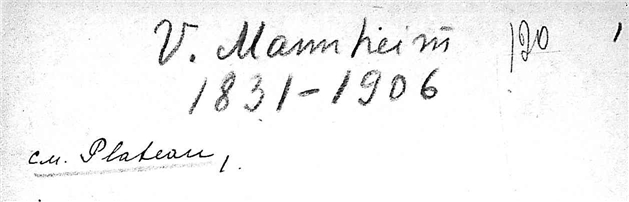 V. Mannheim 120
1831-1906
см. Plateau,